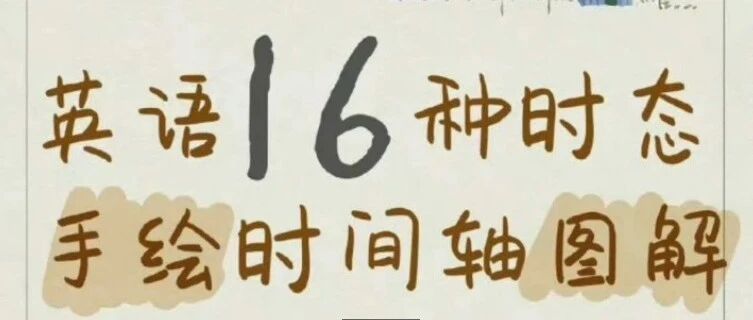 英语16种时态
手绘时间轴图解